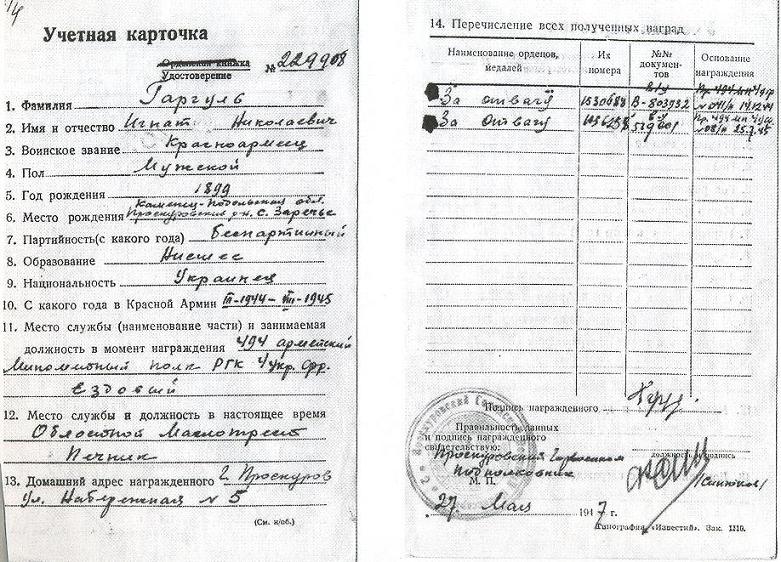 Учетная карточка
Орденская книжка
Удостоверение № 229908
1. Фамилия Гаргуль
2. Имя и отчество Игнат Николаевич
3. Воинское звание Красноармеец
4. Пол Мужской
5. Год рождения 1899
Каменец-Подольская обл.
6. Место рождения Проскуровский рн. с. Заречье
7. Партийность(с какого года) Беспартийный
8. Образование Низшее
9. Национальность Украинец
10. С какого года в Красной Армии III-1944 – VIII-1945
11. Место службы (наименование части) и занимаемая
должность в момент награждения 494 армейский
Минометный полк РГК 4 укр. фр.
Ездовый
12. Место службы и должность в настоящее время
Областной Маслотрест
Печник
13. Домашний адрес награжденного г. Проскуров
ул. Набережная № 5
(См. н/об.)
14. Перечисление всех полученных наград
Наименование орденов, медалей Их номера №№ документов Основание награждения
За отвагу 1530683 В-803932
За отвагу 519601
Подпись награжденного
Правильность данных
и подпись награжденного
свидетельствую:
должность и подпись
Проскуровский Горвоенком
подполковник
М. П.
27 Мая 1947 г.
Типография «Известий». Зак. 1210.